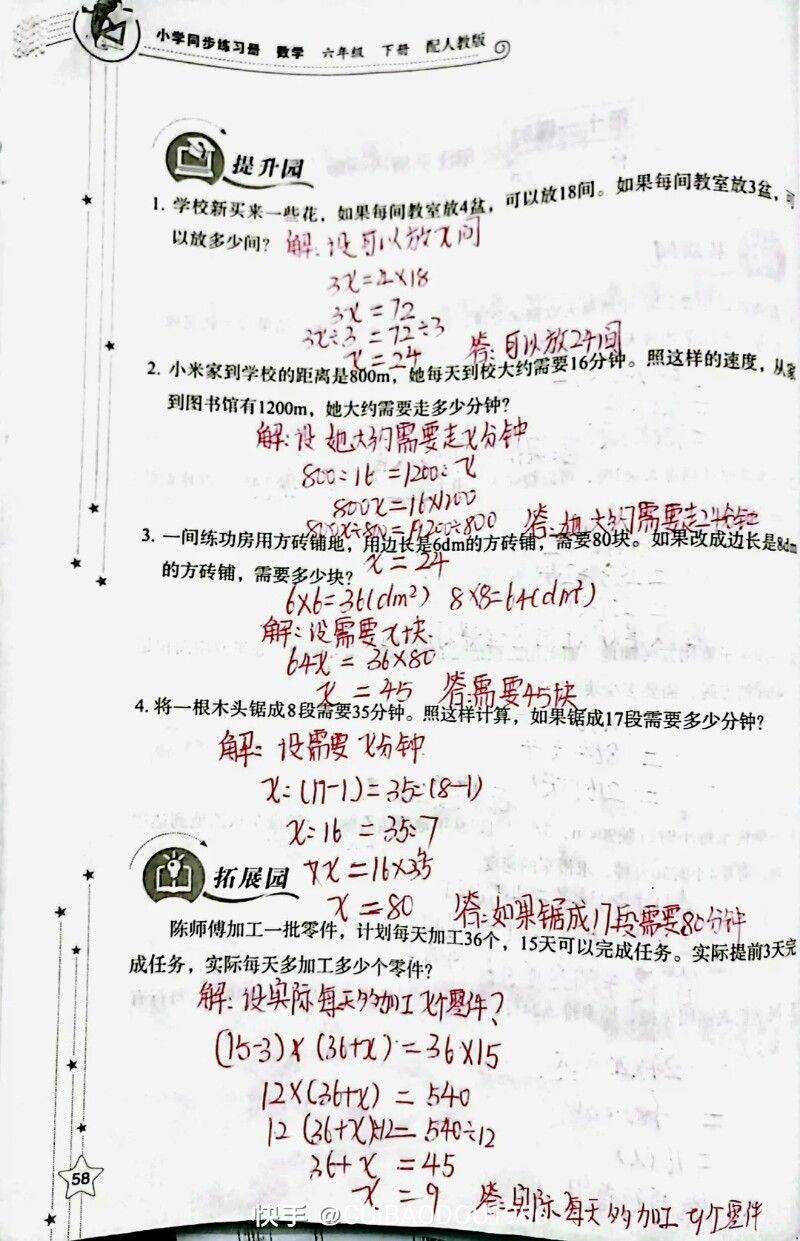 小学同步练习册 数学 六年级 下册 配人教版
提升园
1. 学校新买来一些花，如果每间教室放4盆，可以放18间。如果每间教室放3盆，可
以放多少间？
解：设可以放x间
3x=4×18
3x=72
3x÷3=72÷3
x=24 答：可以放24间
2. 小米家到学校的距离是800m，她每天到校大约需要16分钟。照这样的速度，从家
到图书馆有1200m，她大约需要走多少分钟？
解：设她大约需要走x分钟
800:16=1200:x
800x=16×1200
800x÷800=19200÷800 答：她大约需要走24分钟
x=24
3. 一间练功房用方砖铺地，用边长是6dm的方砖铺，需要80块。如果改成边长是8dm
的方砖铺，需要多少块？
6×6=36(dm²) 8×8=64(dm²)
解：设需要x块
64x=36×80
x=45 答：需要45块
4. 将一根木头锯成8段需要35分钟。照这样计算，如果锯成17段需要多少分钟？
解：设需要x分钟
x:(17-1)=35:(8-1)
x:16=35:7
7x=16×35
x=80 答：如果锯成17段需要80分钟
拓展园
陈师傅加工一批零件，计划每天加工36个，15天可以完成任务。实际提前3天完
成任务，实际每天多加工多少个零件？
解：设实际每天多加工x个零件？
(15-3)×(36+x)=36×15
12×(36+x)=540
12(36+x)÷12=540÷12
36+x=45
x=9 答：实际每天多加工9个零件
58
快手